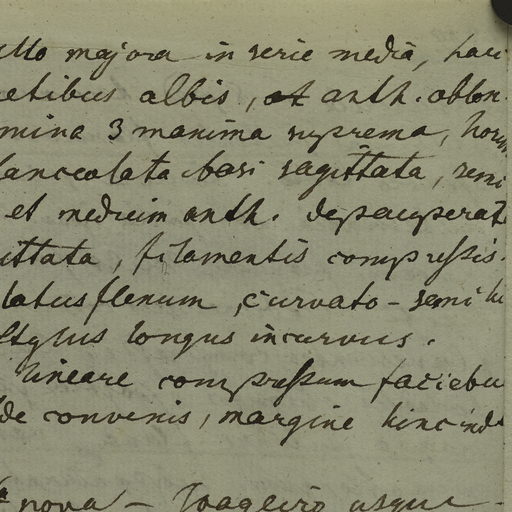 ullo majora in serie media, pari
etibus albis, et anth. oblon
mina 3 maxima suprema, horum
lanceolata basi sagittata, semi
et medium anth. depauperat
ittata, filamentis compressis.
latus flenum, curvato-semi lu
stylus longus incurvus.
lineare compressum faciebu
lde convenis, margine hinc ind
nova - Joazeiro usque